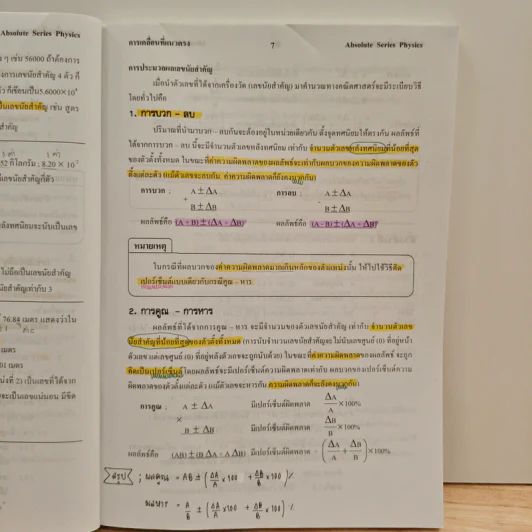 Absolute Series Physics
ๆ เช่น 56000 ถ้าต้องการ
งการเลขนัยสำคัญ 4 ตัว ก็
ก็เขียนเป็น5.6000×10⁴
เป็นเลขนัยสำคัญ เช่น สูตร
สำคัญ
กิโลกรัม ; 8.20 × 10⁻²
ลังทศนิยมจะนับเป็นเลข
ไม่ถือเป็นเลขนัยสำคัญ
นัยสำคัญเท่ากับ 3
76.84 เมตร แสดงว่าใน
เมตร
01 เมตร
การเคลื่อนที่แนวตรง 7 Absolute Series Physics
การประมวลผลเลขนัยสำคัญ
เมื่อนำตัวเลขที่ได้จากเครื่องวัด (เลขนัยสำคัญ) มาคำนวณทางคณิตศาสตร์จะมีระเบียบวิธี
โดยทั่วไปคือ
1. การบวก - ลบ
ปริมาณที่นำมาบวก - ลบกันจะต้องอยู่ในหน่วยเดียวกัน ตั้งจุดทศนิยมให้ตรงกัน ผลลัพธ์ที่
ได้จากการบวก - ลบ นี้จะมีจำนวนตัวเลขหลังทศนิยม เท่ากับ จำนวนตัวเลขหลังทศนิยมที่น้อยที่สุด
ของตัวตั้งทั้งหมด ในขณะที่ค่าความผิดพลาดของผลลัพธ์จะเท่ากับผลบวกของความผิดพลาดของตัว
ตั้งแต่ละตัว (แม้ตัวเลขจะลบกัน ค่าความผิดพลาดก็ยังคงบวกกัน)
การบวก : A ± ΔA การลบ : A ± ΔA
+ -
B ± ΔB B ± ΔB
ผลลัพธ์คือ (A + B) ± (ΔA + ΔB) ผลลัพธ์คือ (A - B) ± (ΔA + ΔB)
หมายเหตุ
ในกรณีที่ผลบวกของค่าความผิดพลาดมากเกินหลักของตำแหน่งนั้น ให้ไปใช้วิธีคิด
เปอร์เซ็นต์แบบเดียวกับกรณีคูณ - หาร
2. การคูณ - การหาร
ผลลัพธ์ที่ได้จากการคูณ - หาร จะมีจำนวนของตัวเลขนัยสำคัญ เท่ากับ จำนวนตัวเลข
นัยสำคัญที่น้อยที่สุดของตัวตั้งทั้งหมด (การนับจำนวนเลขนัยสำคัญจะไม่นับเลขศูนย์ (0) ที่อยู่หน้า
ตัวเลข แต่เลขศูนย์ (0) ที่อยู่หลังตัวเลขจะถูกนับด้วย) ในขณะที่ค่าความผิดพลาดของผลลัพธ์ จะถูก
คิดเป็นเปอร์เซ็นต์ โดยผลลัพธ์จะมีเปอร์เซ็นต์ความผิดพลาดเท่ากับ ผลบวกของเปอร์เซ็นต์ความ
ผิดพลาดของตัวตั้งแต่ละตัว (แม้ตัวเลขจะหารกัน ความผิดพลาดก็จะยังคงบวกกัน)
การคูณ : A ± ΔA มีเปอร์เซ็นต์ผิดพลาด ΔA/A × 100%
×
B ± ΔB มีเปอร์เซ็นต์ผิดพลาด ΔB/B × 100%
ผลลัพธ์คือ (AB) ± (BΔA + AΔB) มีเปอร์เซ็นต์ผิดพลาด = (ΔA/A + ΔB/B) × 100%
สรุป ; ผลคูณ = AB ± (ΔA/A × 100 + ΔB/B × 100) %
ผลหาร = A/B ± (ΔA/A × 100 + ΔB/B × 100) %